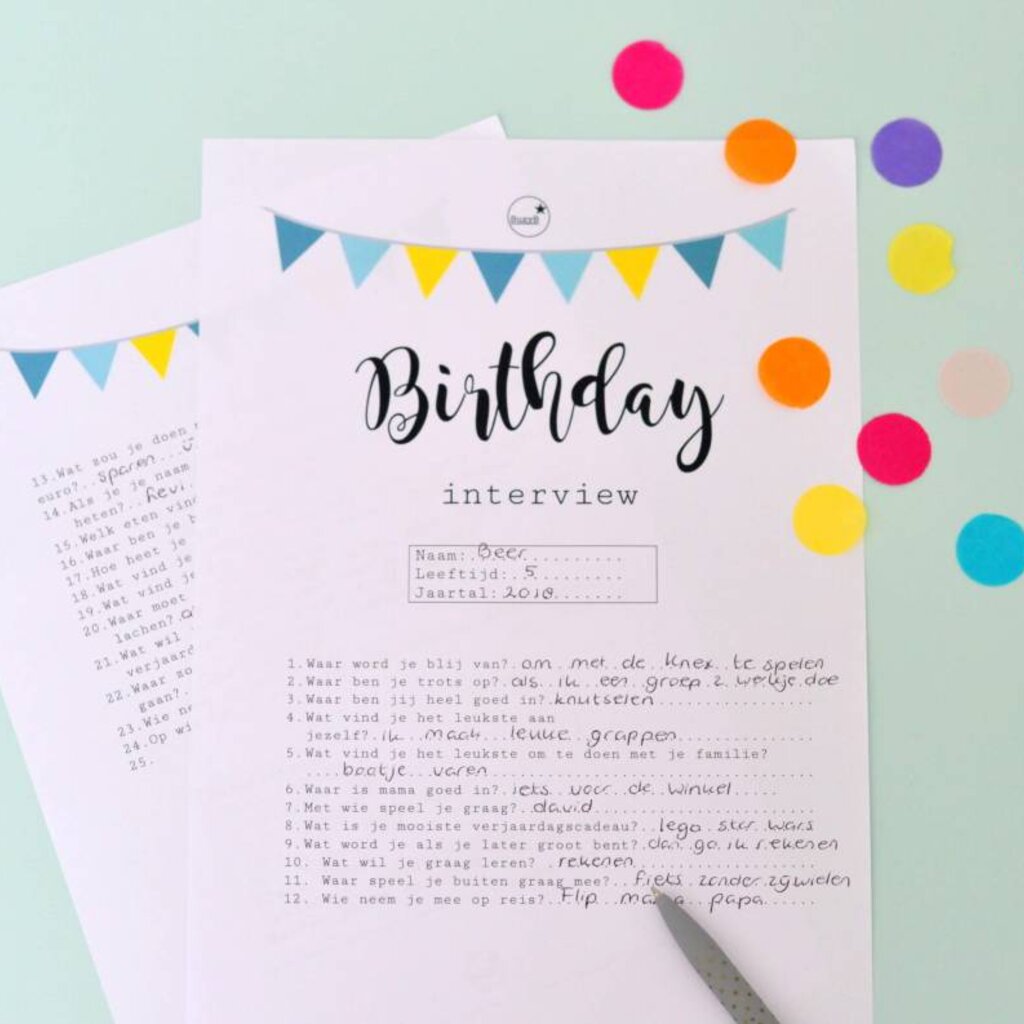 Birthday
interview
Nam:.Beer..........
Leeftijd:..5.........
Jaartal:2018.......
1.Waar word je blij van?.om..met..de..Knex..te spelen
2.Waar ben je trots op?.als..ik..een..groep.2.werkje.doe
3.Waar ben jij heel goed in?.knutselen..................
4.Wat vind je het leukste aan
jezelf?.ik...maak...leuke..grappen...............
5.Wat vind je het leukste om te doen met je familie?
....bootje..varen....................................
6.Waar is mama goed in?.iets..voor..de..winkel.....
7.Met wie speel je graag?..david.....................
8.Wat is je mooiste verjaardagscadeau?..lego.star.wars
9.Wat word je als je later groot bent?.dan.ga.ik rekenen
10. Wat wil je graag leren? .rekenen..................
11. Waar speel je buiten graag mee?..fiets.zonder.zywielen
12. Wie neem je mee op reis?..Flip..mama..papa......
13.Wat zou je doen
euro?..sparen
14.Als je je naam
heten?..
15.Welk eten vin
16.Waar ben je b
17.Hoe heet je
18.Wat vind je
19.Wat vind je
20.Waar moet
lachen?.
21.Wat wil
verjaard
22.Waar zo
gaan?.
23.Wie ne
24.Op wi
25.